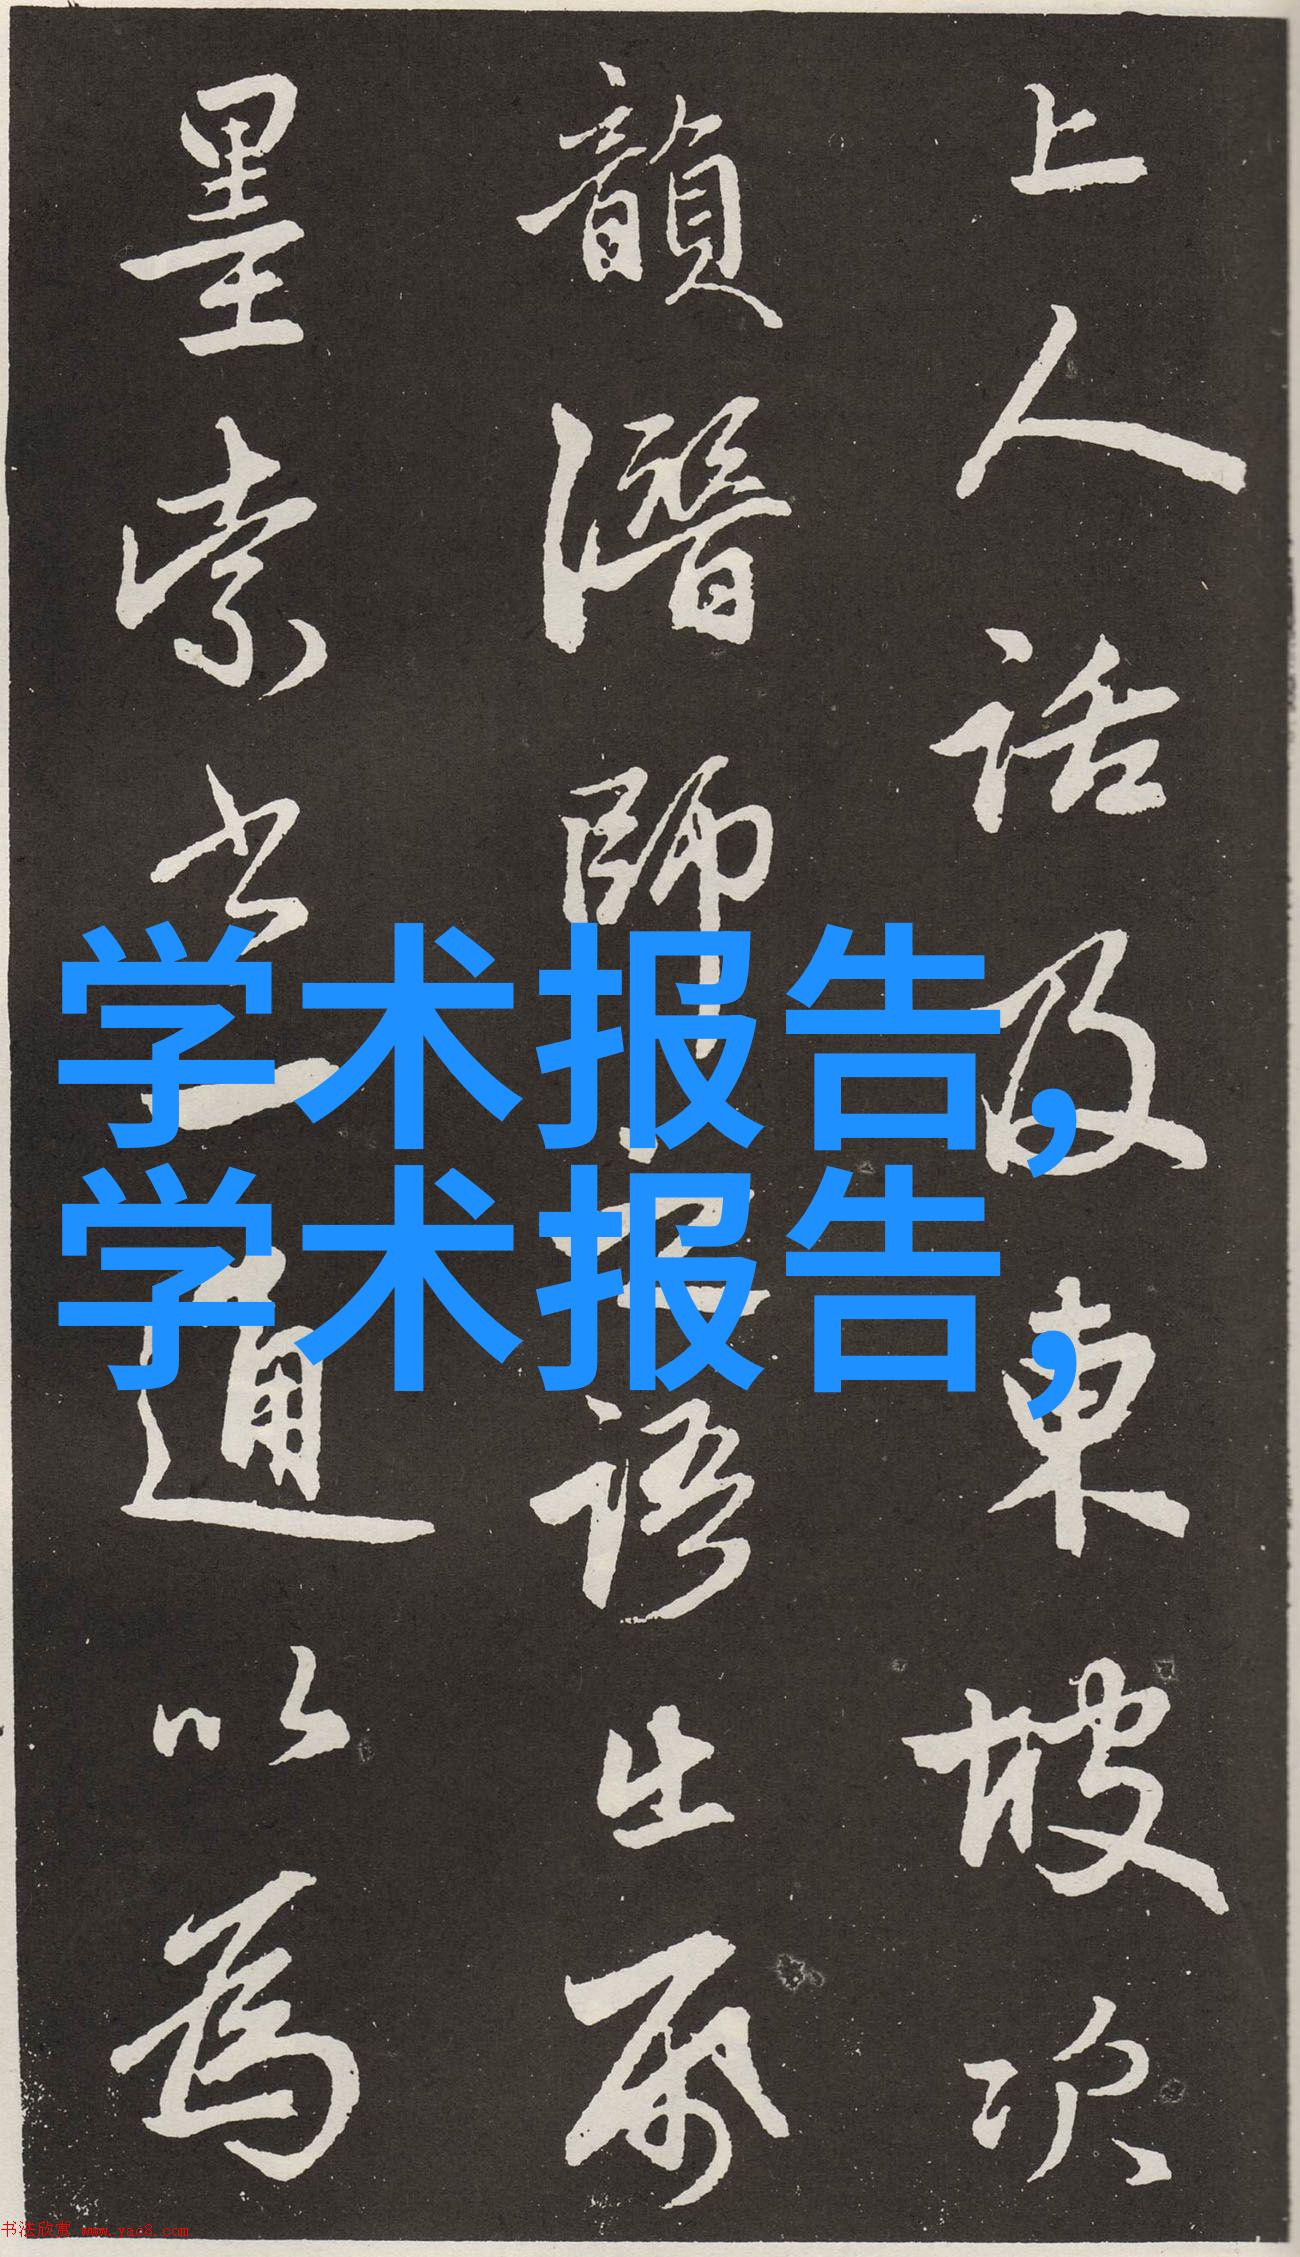 上人話及東坡次
韻潛師
語生
墨索
通以為
学术报告,
学术报告,
书法欣赏 www.yac8.com